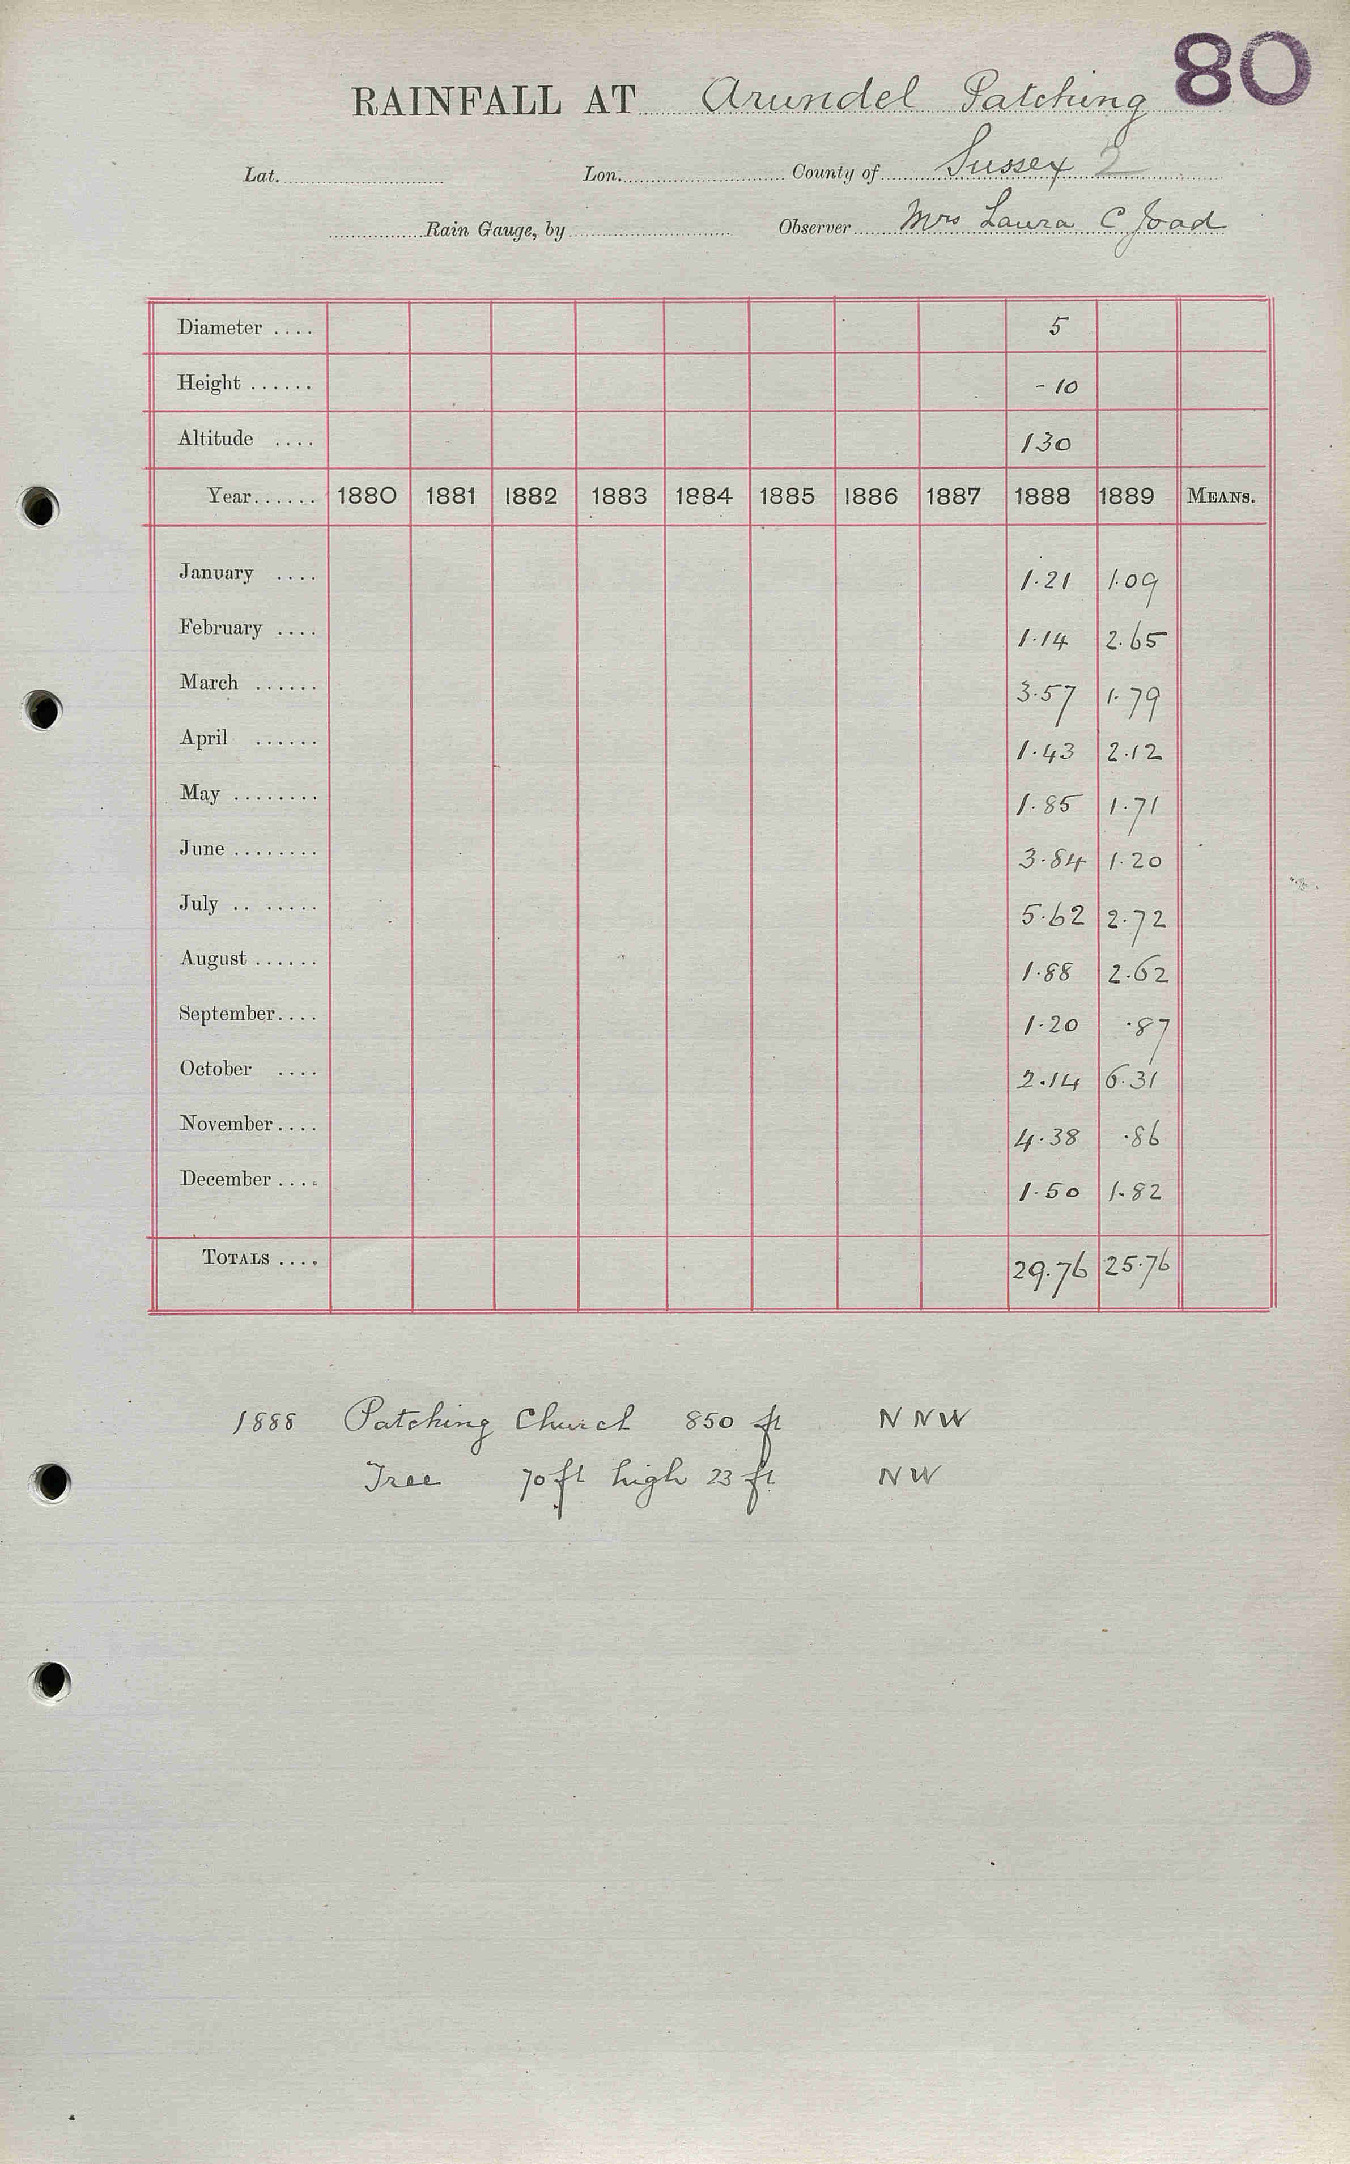 80
RAINFALL AT Arundel Patching
Lat. Lon. County of Sussex 2
Rain Gauge, by Observer Mrs Laura C Joad
Diameter .... 5
Height ...... - 10
Altitude .... 130
Year...... 1880 1881 1882 1883 1884 1885 1886 1887 1888 1889 MEANS.
January .... 1.21 1.09
February .... 1.14 2.65
March ...... 3.57 1.79
April ...... 1.43 2.12
May ........ 1.85 1.71
June ........ 3.84 1.20
July .. ..... 5.62 2.72
August ...... 1.88 2.62
September.... 1.20 .87
October .... 2.14 6.31
November.... 4.38 .86
December .... 1.50 1.82
TOTALS .... 29.76 25.76
1888 Patching Church 850 ft NNW
Tree 70ft high 23 ft NW